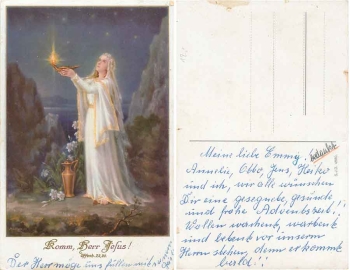 Komm, Herr Jesus!
Offenb. 22,20.
Der Herr möge uns füllen mit s.
Meine liebe Emmy,
Annelie, Obbo, Jens, Heiko
und ich, wir alle wünschen
Dir eine gesegnete, gesunde
und frohe Adventszeit!
Wollen wachend, wartend
und betend vor unserm
Herrn stehen, denn er kommt
bald!!